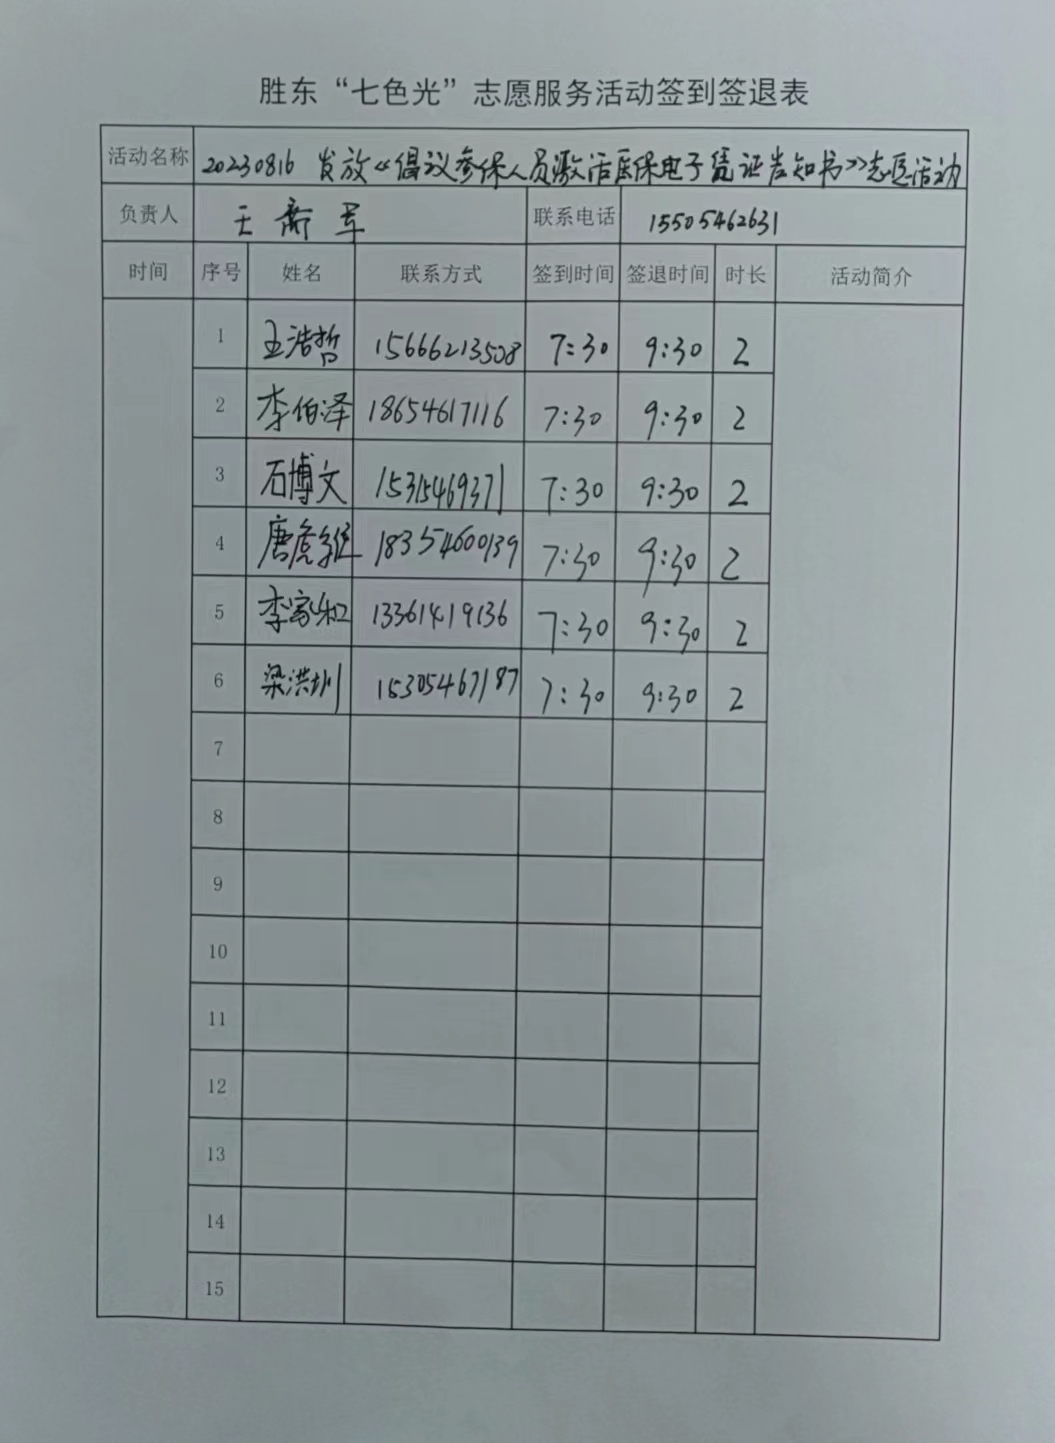 胜东“七色光”志愿服务活动签到签退表
活动名称 20230816 发放《倡议参保人员激活医保电子凭证告知书》志愿活动
负责人 王斋军 联系电话 15505462631
时间 序号 姓名 联系方式 签到时间 签退时间 时长 活动简介
1 王浩哲 15666213508 7:30 9:30 2
2 李伯泽 18654617116 7:30 9:30 2
3 石博文 15315469371 7:30 9:30 2
4 唐虎 18354600139 7:30 9:30 2
5 李家和 13361419136 7:30 9:30 2
6 梁洪圳 15305467187 7:30 9:30 2
7
8
9
10
11
12
13
14
15